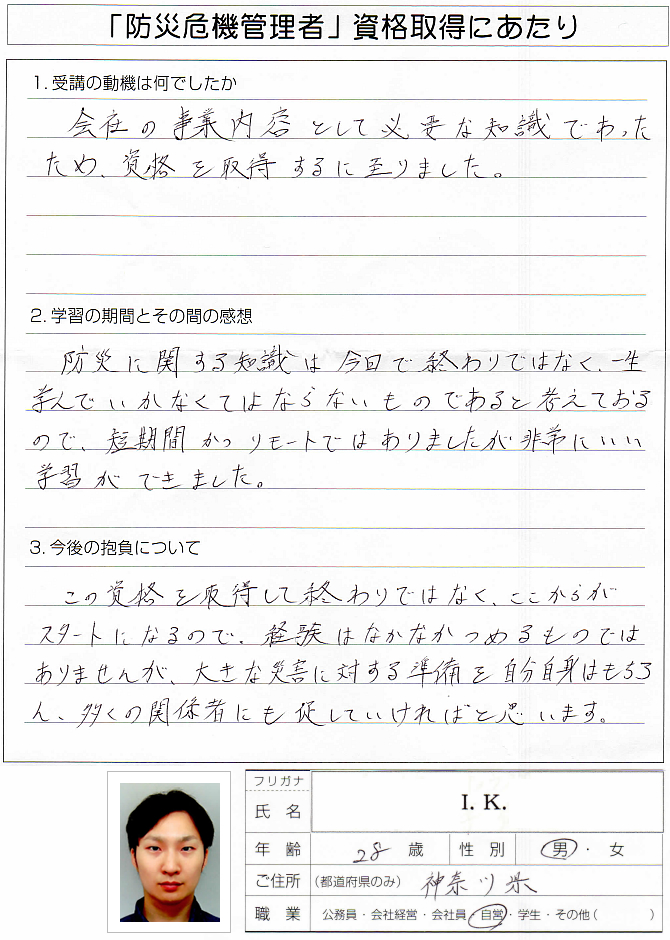 「防災危機管理者」資格取得にあたり
1. 受講の動機は何でしたか
会社の事業内容として必要な知識であった
ため、資格を取得するに至りました。
2. 学習の期間とその間の感想
防災に関する知識は今回で終わりではなく、一生
学んでいかなくてはならないものであると考えておる
ので、短期間かつリモートではありましたが非常にいい
学習ができました。
3. 今後の抱負について
この資格を取得して終わりではなく、ここからが
スタートになるので、経験はなかなかつめるものでは
ありませんが、大きな災害に対する準備を自分自身はもちろ
ん、多くの関係者にも促していければと思います。
フリガナ
氏名 I. K.
年齢 28 歳 性別 男・女
ご住所 (都道府県のみ) 神奈川県
職業 公務員・会社経営・会社員・自営・学生・その他( )